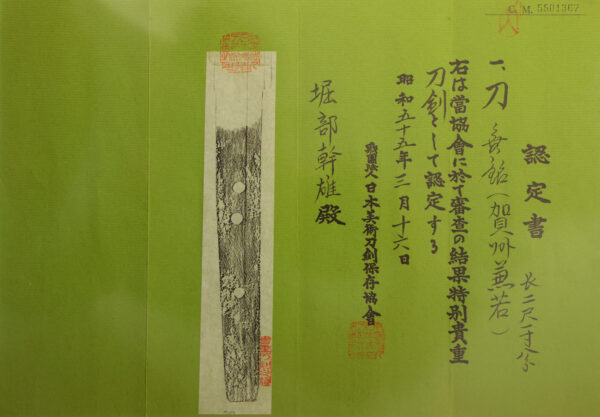 G. M. 5501367
認定書
一、刀 無銘（賀州兼若） 長二尺一寸 分
右は當協會に於て審査の結果特別貴重
刀劍として認定する
昭和五十五年三月十六日
財團法人日本美術刀劍保存協會
堀部幹雄殿